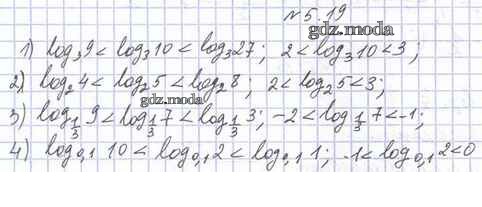 №5.19
gdz.moda
1) log₃9 < log₃10 < log₃27; 2 < log₃10 < 3;
2) log₂4 < log₂5 < log₂8; 2 < log₂5 < 3;
gdz.moda
3) log_{1/3} 9 < log_{1/3} 7 < log_{1/3} 3; -2 < log_{1/3} 7 < -1;
4) log_{0,1} 10 < log_{0,1} 2 < log_{0,1} 1; -1 < log_{0,1} 2 < 0
gdz.moda